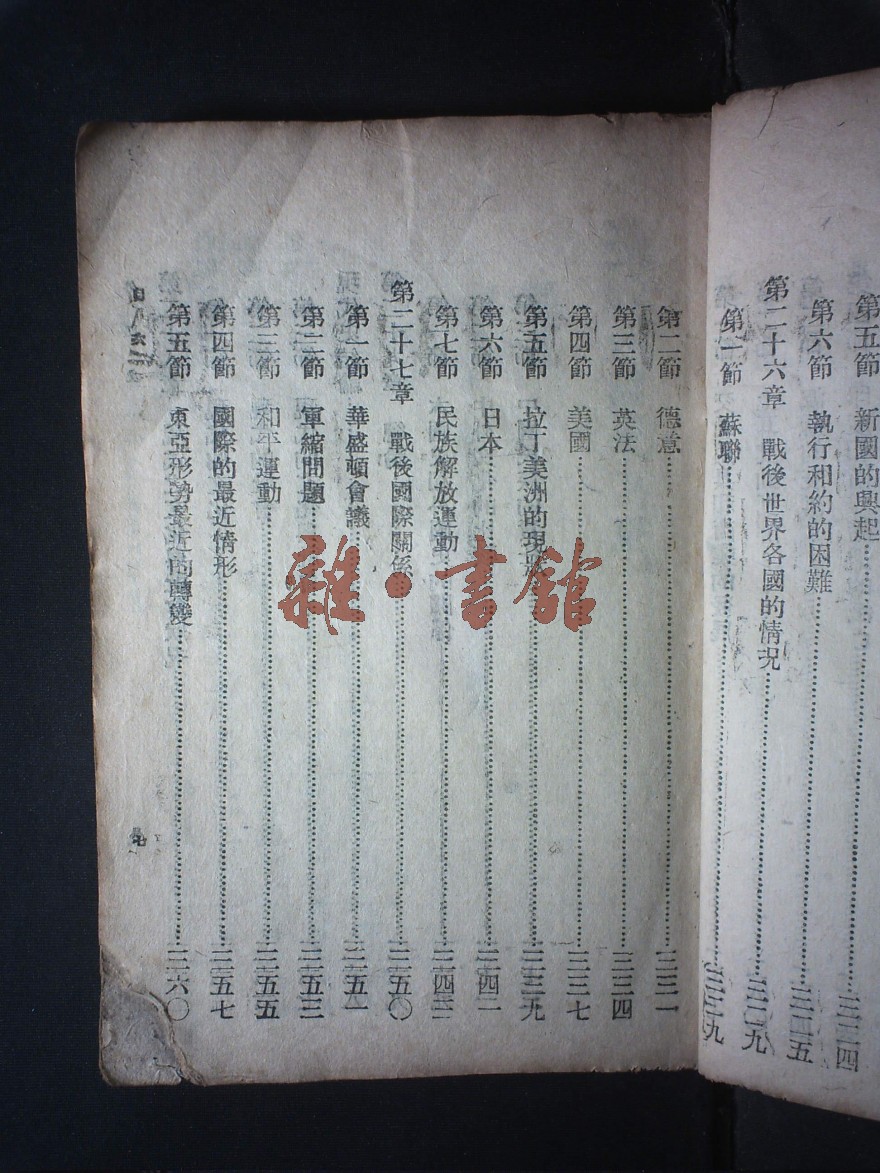 第五節 新國的興起……二二四
第六節 執行和約的困難……二二五
第二十六章 戰後世界各國的情況……二二九
第一節 蘇聯……二二九
第二節 德意……二三一
第三節 英法……二三四
第四節 美國……二三七
第五節 拉丁美洲的現……二三九
第六節 日本……二四一
第七節 民族解放運動……二四三
第二十七章 戰後國際關係……二五〇
第一節 華盛頓會議……二五一
第二節 軍縮問題……二五三
第三節 和平運動……二五五
第四節 國際的最近情形……二五七
第五節 東亞形勢最近的轉變……二六〇
七
雜·書館